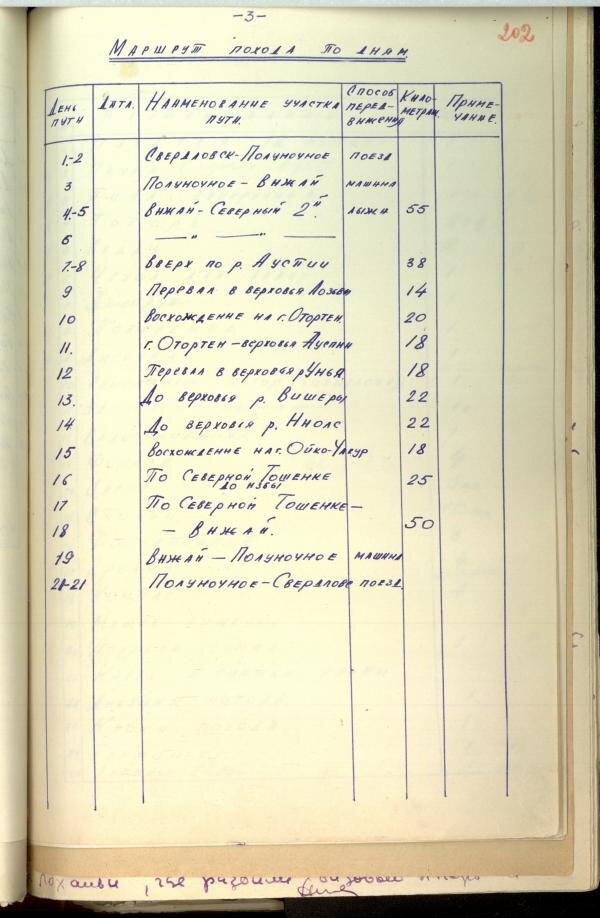 -3-
202
МАРШРУТ ПОХОДА ПО ДНЯМ.
ДЕНЬ ПУТИ ДАТА. НАИМЕНОВАНИЕ УЧАСТКА ПУТИ. СПОСОБ ПЕРЕД-ВИЖЕНИЯ КИЛО-МЕТРАЖ. ПРИМЕ-ЧАНИЕ.
1.-2 СВЕРДЛОВСК-ПОЛУНОЧНОЕ ПОЕЗД
3 ПОЛУНОЧНОЕ - ВИЖАЙ МАШИНА
4.-5 ВИЖАЙ-СЕВЕРНЫЙ 2й. ЛЫЖИ 55
6 — " — " —
7.-8 ВВЕРХ ПО Р. АУСПИИ 38
9 ПЕРЕВАЛ В ВЕРХОВЬЯ ЛОЗЬВЫ 14
10 ВОСХОЖДЕНИЕ НА Г. ОТОРТЕН 20
11. Г. ОТОРТЕН - ВЕРХОВЬЯ АУСПИИ 18
12 ПЕРЕВАЛ В ВЕРХОВЬЯ Р УНЬЯ 18
13. ДО ВЕРХОВЬЯ Р. ВИШЕРЫ 22
14 ДО ВЕРХОВЬЯ Р. НИОЛС 22
15 ВОСХОЖДЕНИЕ НА Г. ОЙКО-ЧАКУР 18
16 ПО СЕВЕРНОЙ ТОШЕНКЕ 25
ДО ИЗБЫ
17 ПО СЕВЕРНОЙ ТОШЕНКЕ-
18 - ВИЖАЙ. 50
19 ВИЖАЙ - ПОЛУНОЧНОЕ МАШИНА
20-21 ПОЛУНОЧНОЕ-СВЕРДЛОВС ПОЕЗД.
, где разбили базовый